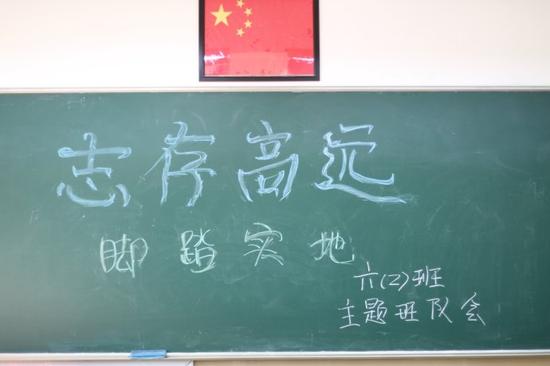 志存高远
脚踏实地
六(2)班
主题班队会